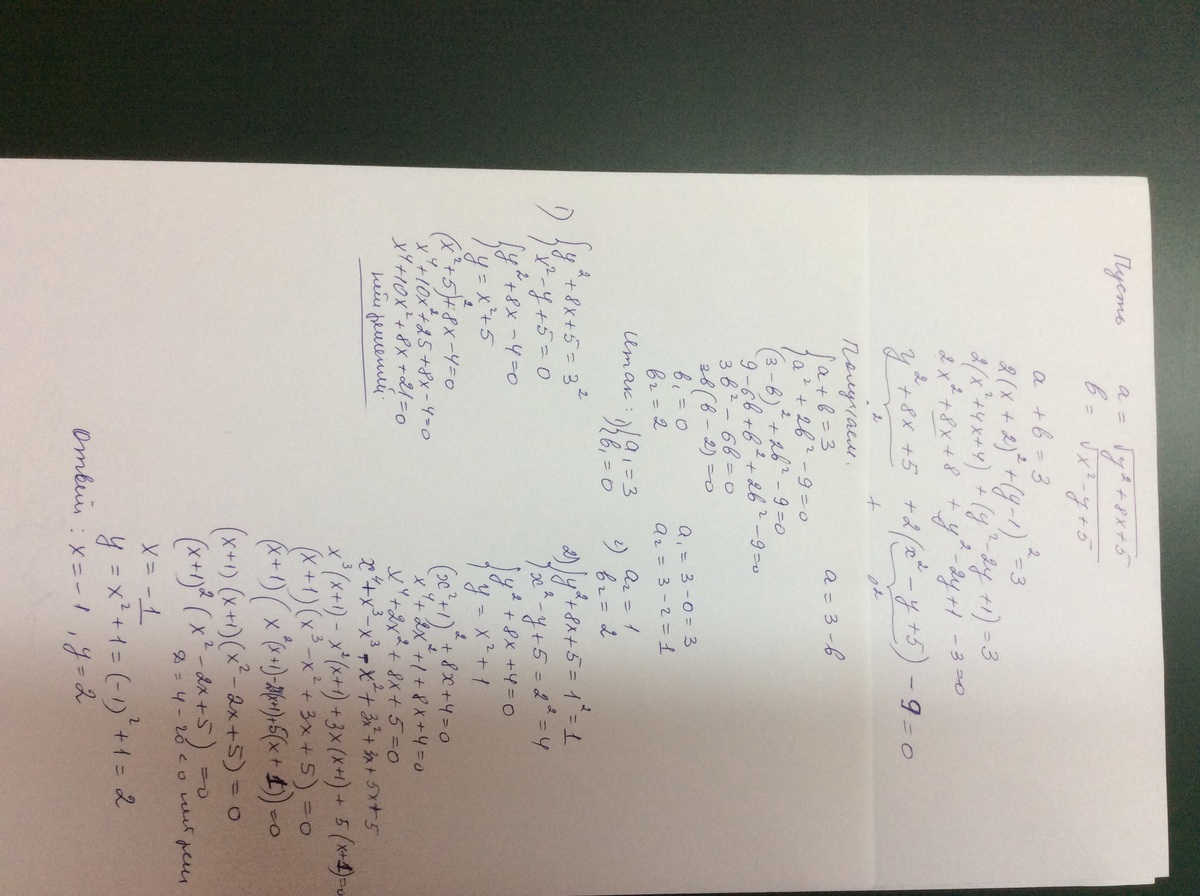 Пусть a = √(y² + 8x + 5)
b = √(x² - y + 5)
a + b = 3
2(x + 2)² + (y - 1)² = 3
2(x² + 4x + 4) + (y² - 2y + 1) = 3
2x² + 8x + 8 + y² - 2y + 1 - 3 = 0
y² + 8x + 5 + 2(x² - y + 5) - 9 = 0
a² + b²
Получаем.
{ a + b = 3 a = 3 - b
{ a² + 2b² - 9 = 0
(3 - b)² + 2b² - 9 = 0
9 - 6b + b² + 2b² - 9 = 0
3b² - 6b = 0
3b(b - 2) = 0
b₁ = 0 a₁ = 3 - 0 = 3
b₂ = 2 a₂ = 3 - 2 = 1
Итак: 1) { a₁ = 3 2) a₂ = 1
{ b₁ = 0 b₂ = 2
1) { y² + 8x + 5 = 3²
{ x² - y + 5 = 0
{ y² + 8x - 4 = 0
{ y = x² + 5
(x² + 5)² + 8x - 4 = 0
x⁴ + 10x² + 25 + 8x - 4 = 0
x⁴ + 10x² + 8x + 21 = 0
нет решений
2) { y² + 8x + 5 = 1² = 1
{ x² - y + 5 = 2² = 4
{ y² + 8x + 4 = 0
{ y = x² + 1
(x² + 1)² + 8x + 4 = 0
x⁴ + 2x² + 1 + 8x + 4 = 0
x⁴ + 2x² + 8x + 5 = 0
x⁴ + x³ - x³ - x² + 3x² + 3x + 5x + 5
x³(x+1) - x²(x+1) + 3x(x+1) + 5(x+1) = 0
(x+1)(x³ - x² + 3x + 5) = 0
(x+1)(x²(x+1) - 2x(x+1) + 5(x+1)) = 0
(x+1)(x+1)(x² - 2x + 5) = 0
(x+1)²(x² - 2x + 5) = 0
D = 4 - 20 < 0 нет реш
x = -1
y = x² + 1 = (-1)² + 1 = 2
Ответ: x = -1, y = 2